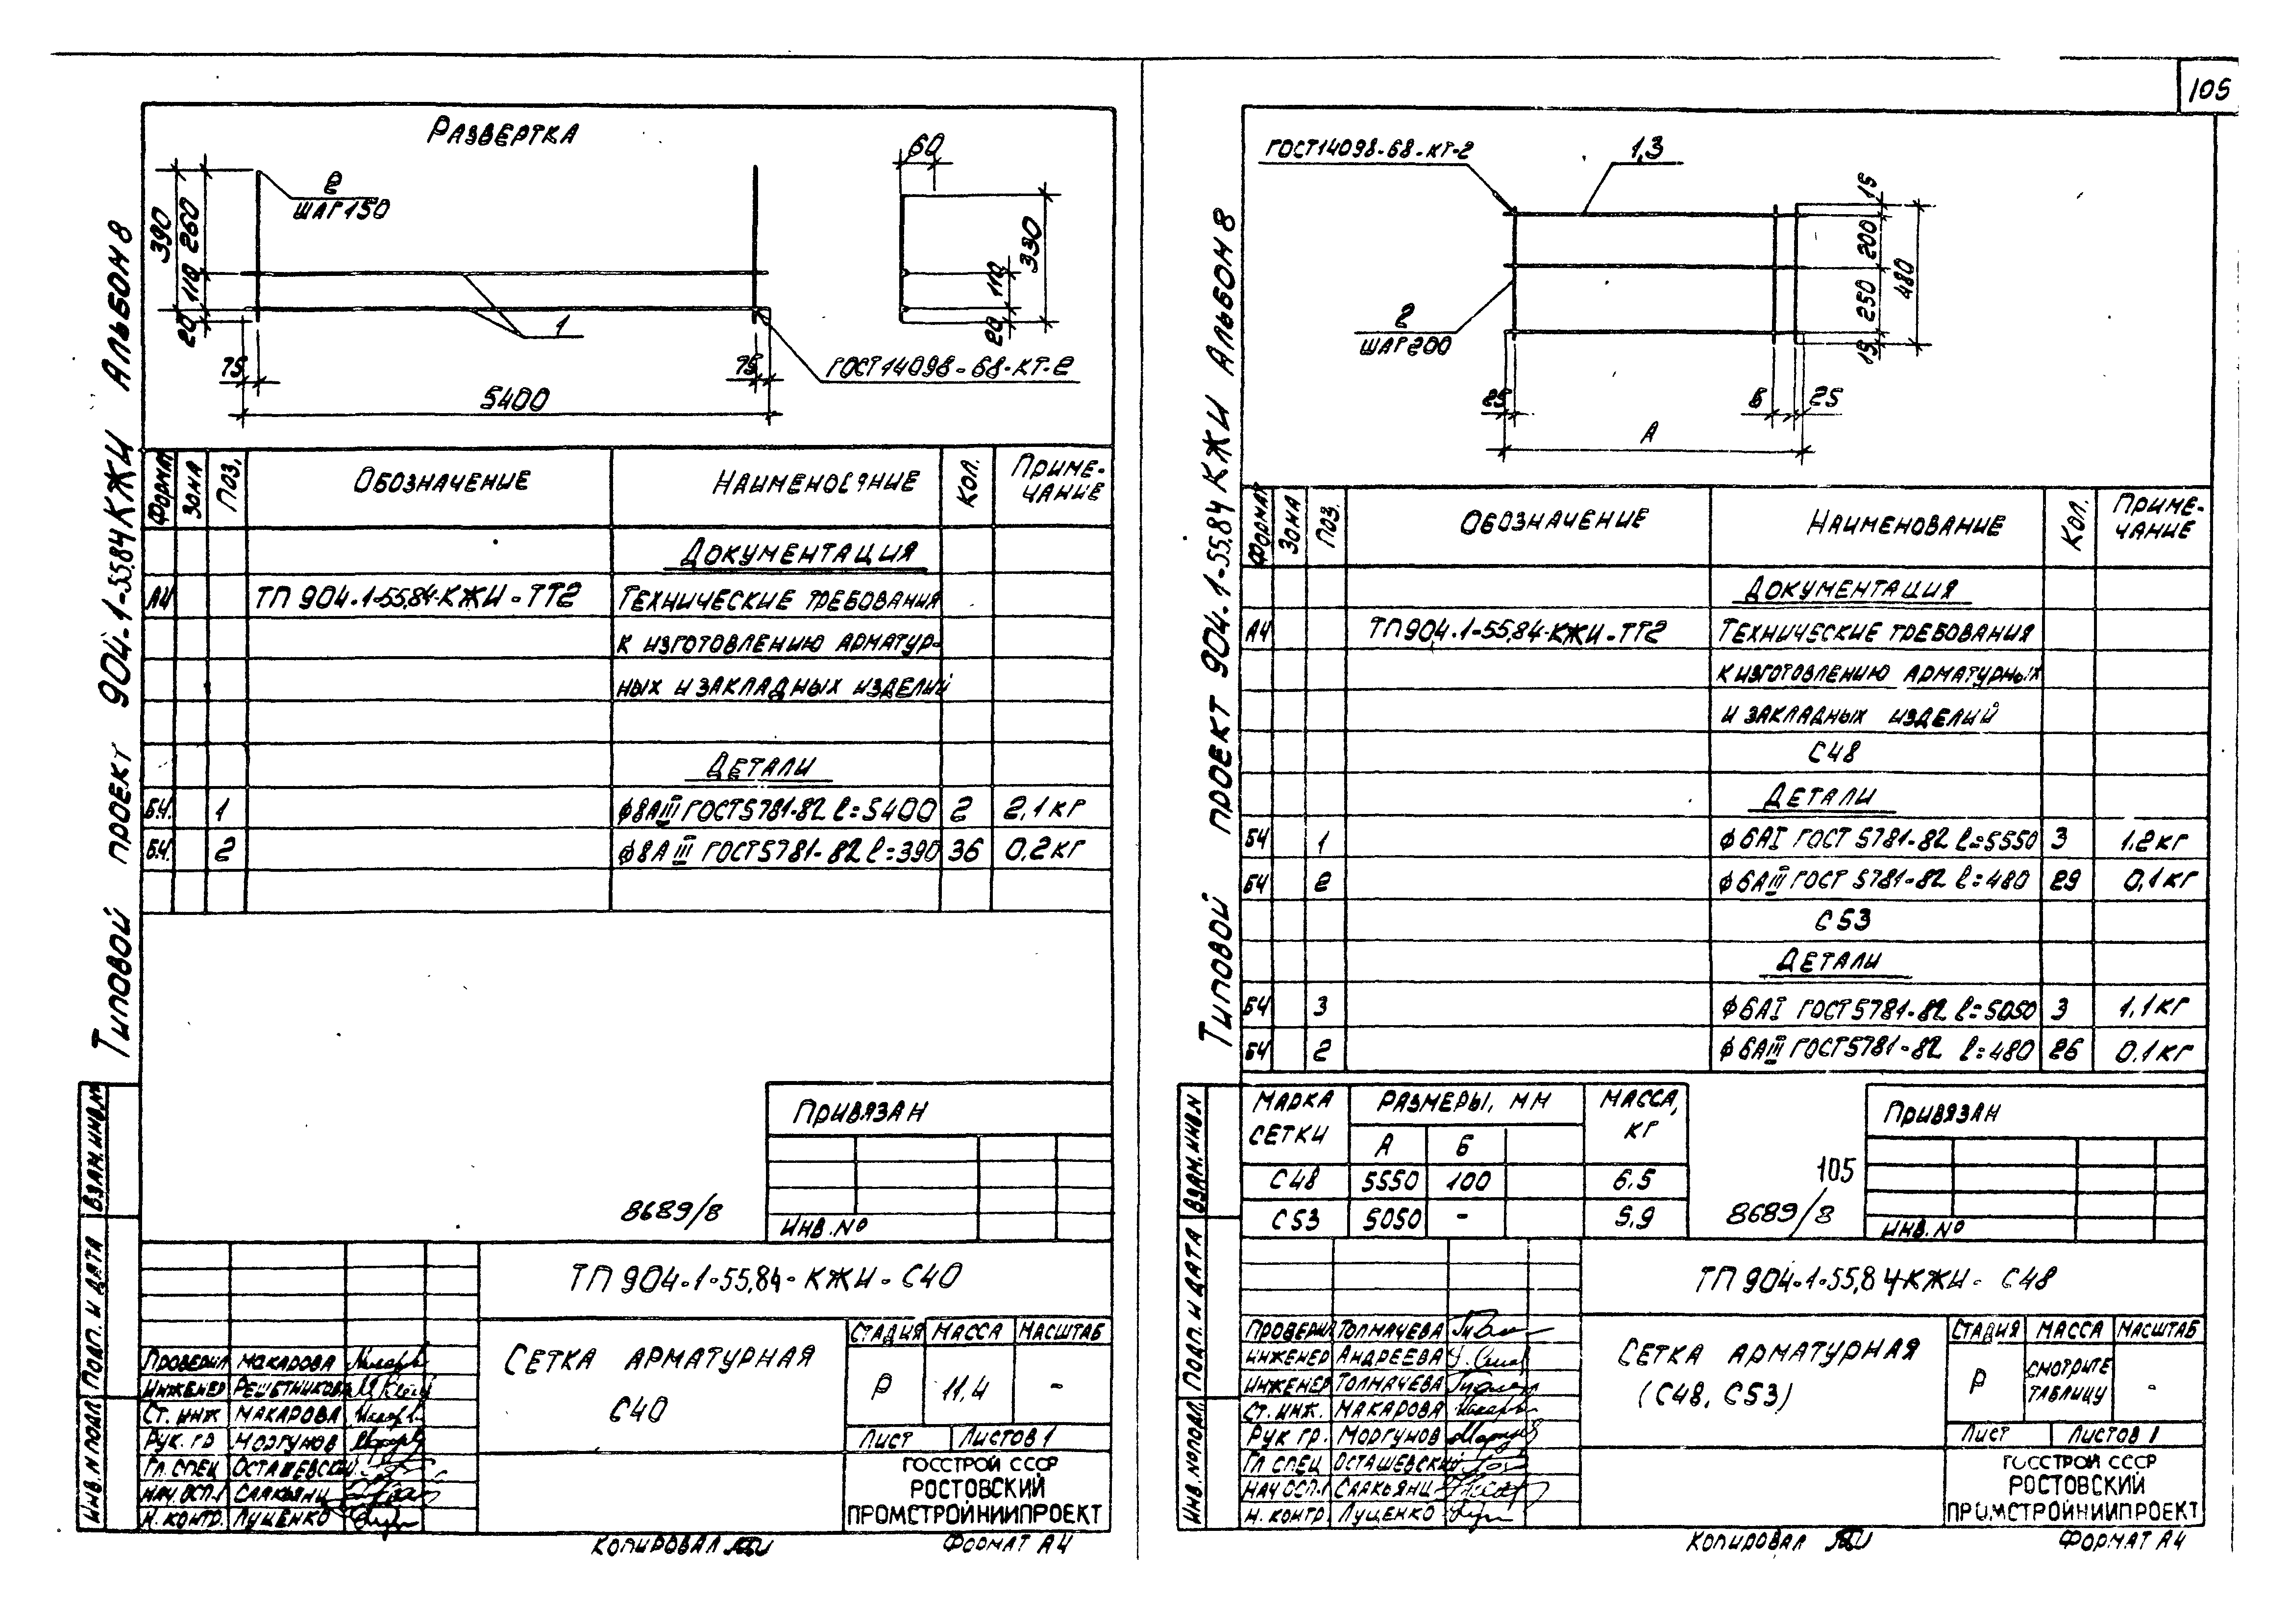 105
Развертка
2
шаг 150
390
260
110
20
1
75
75
5400
ГОСТ 14098-68-КТ-2
60
330
110
20
Типовой проект 904-1-55.84 КЖИ Альбом 8
Формат Зона Поз. Обозначение Наименование Кол. Приме-
чание
Документация
А4 ТП 904-1-55.84-КЖИ-ТТ2 Технические требования
к изготовлению арматур-
ных и закладных изделий
Детали
Б.Ч. 1 ф8АIII ГОСТ 5781-82 ℓ=5400 2 2,1кг
Б.Ч. 2 ф8АIII ГОСТ 5781-82 ℓ=390 36 0,2кг
Привязан
8689/8
Инв.№
Инв.№подл. Подп. и дата Взам.инв.№
ТП 904-1-55.84-КЖИ-С40
Сетка арматурная
С40
Стадия Масса Масштаб
Р 11,4 -
Лист Листов 1
Проверил Макарова
Инженер Решетникова
Ст. инж Макарова
Рук. гр Моргунов
Гл. спец Осташевский
Нач. ОСП-1 Саакьянц
Н. контр. Луценко
ГОССТРОЙ СССР
РОСТОВСКИЙ
ПРОМСТРОЙНИИПРОЕКТ
Копировал
Формат А4
ГОСТ 14098-68-КТ-2
1,3
2
шаг 200
15
200
250
15
480
25
Б
25
А
Типовой проект 904-1-55.84 КЖИ Альбом 8
Формат Зона Поз. Обозначение Наименование Кол. Приме-
чание
Документация
А4 ТП 904.1-55.84-КЖИ-ТТ2 Технические требования
к изготовлению арматурных
и закладных изделий
С48
Детали
БЧ 1 ф6АI ГОСТ 5781-82 ℓ=5550 3 1,2кг
БЧ 2 ф6АIII ГОСТ 5781-82 ℓ=480 29 0,1кг
С53
Детали
БЧ 3 ф6АI ГОСТ 5781-82 ℓ=5050 3 1,1кг
БЧ 2 ф6АIII ГОСТ 5781-82 ℓ=480 26 0,1кг
Марка
сетки
Размеры, мм
Масса,
кг
А Б
С48 5550 100 6,5
С53 5050 - 5,9
105
8689/8
Привязан
Инв.№
Инв.№подл. Подп. и дата Взам.инв.№
ТП 904-1-55.84-КЖИ-С48
Сетка арматурная
(С48, С53)
Стадия Масса Масштаб
Р Смотрите
таблицу -
Лист Листов 1
Проверил Толмачева
Инженер Андреева
Инженер Толмачева
Ст. инж. Макарова
Рук гр. Моргунов
Гл спец Осташевский
Нач ОСП-1 Саакьянц
Н. контр. Луценко
ГОССТРОЙ СССР
РОСТОВСКИЙ
ПРОМСТРОЙНИИПРОЕКТ
Копировал
Формат А4